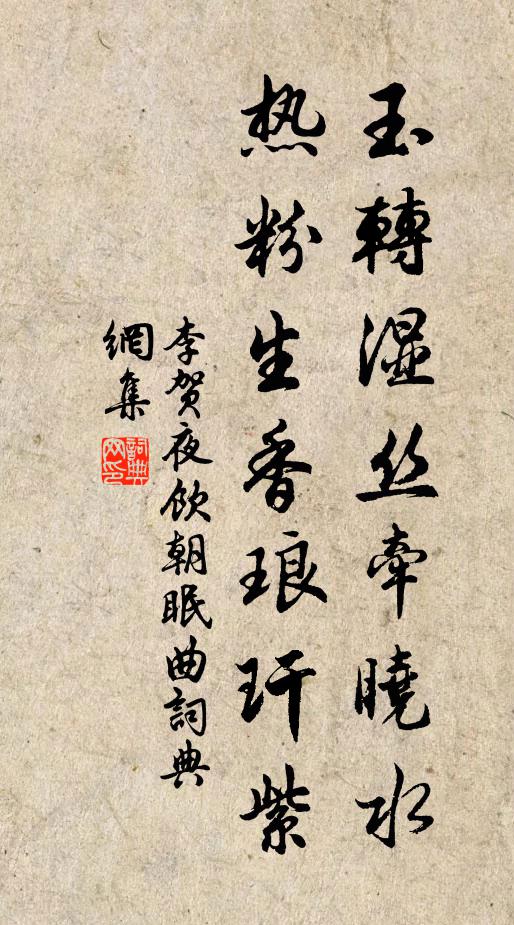 玉轉湿丝牽曉水
热粉生香琅玕紫
李贺夜飲朝眠曲詞典
網集
詞典网印